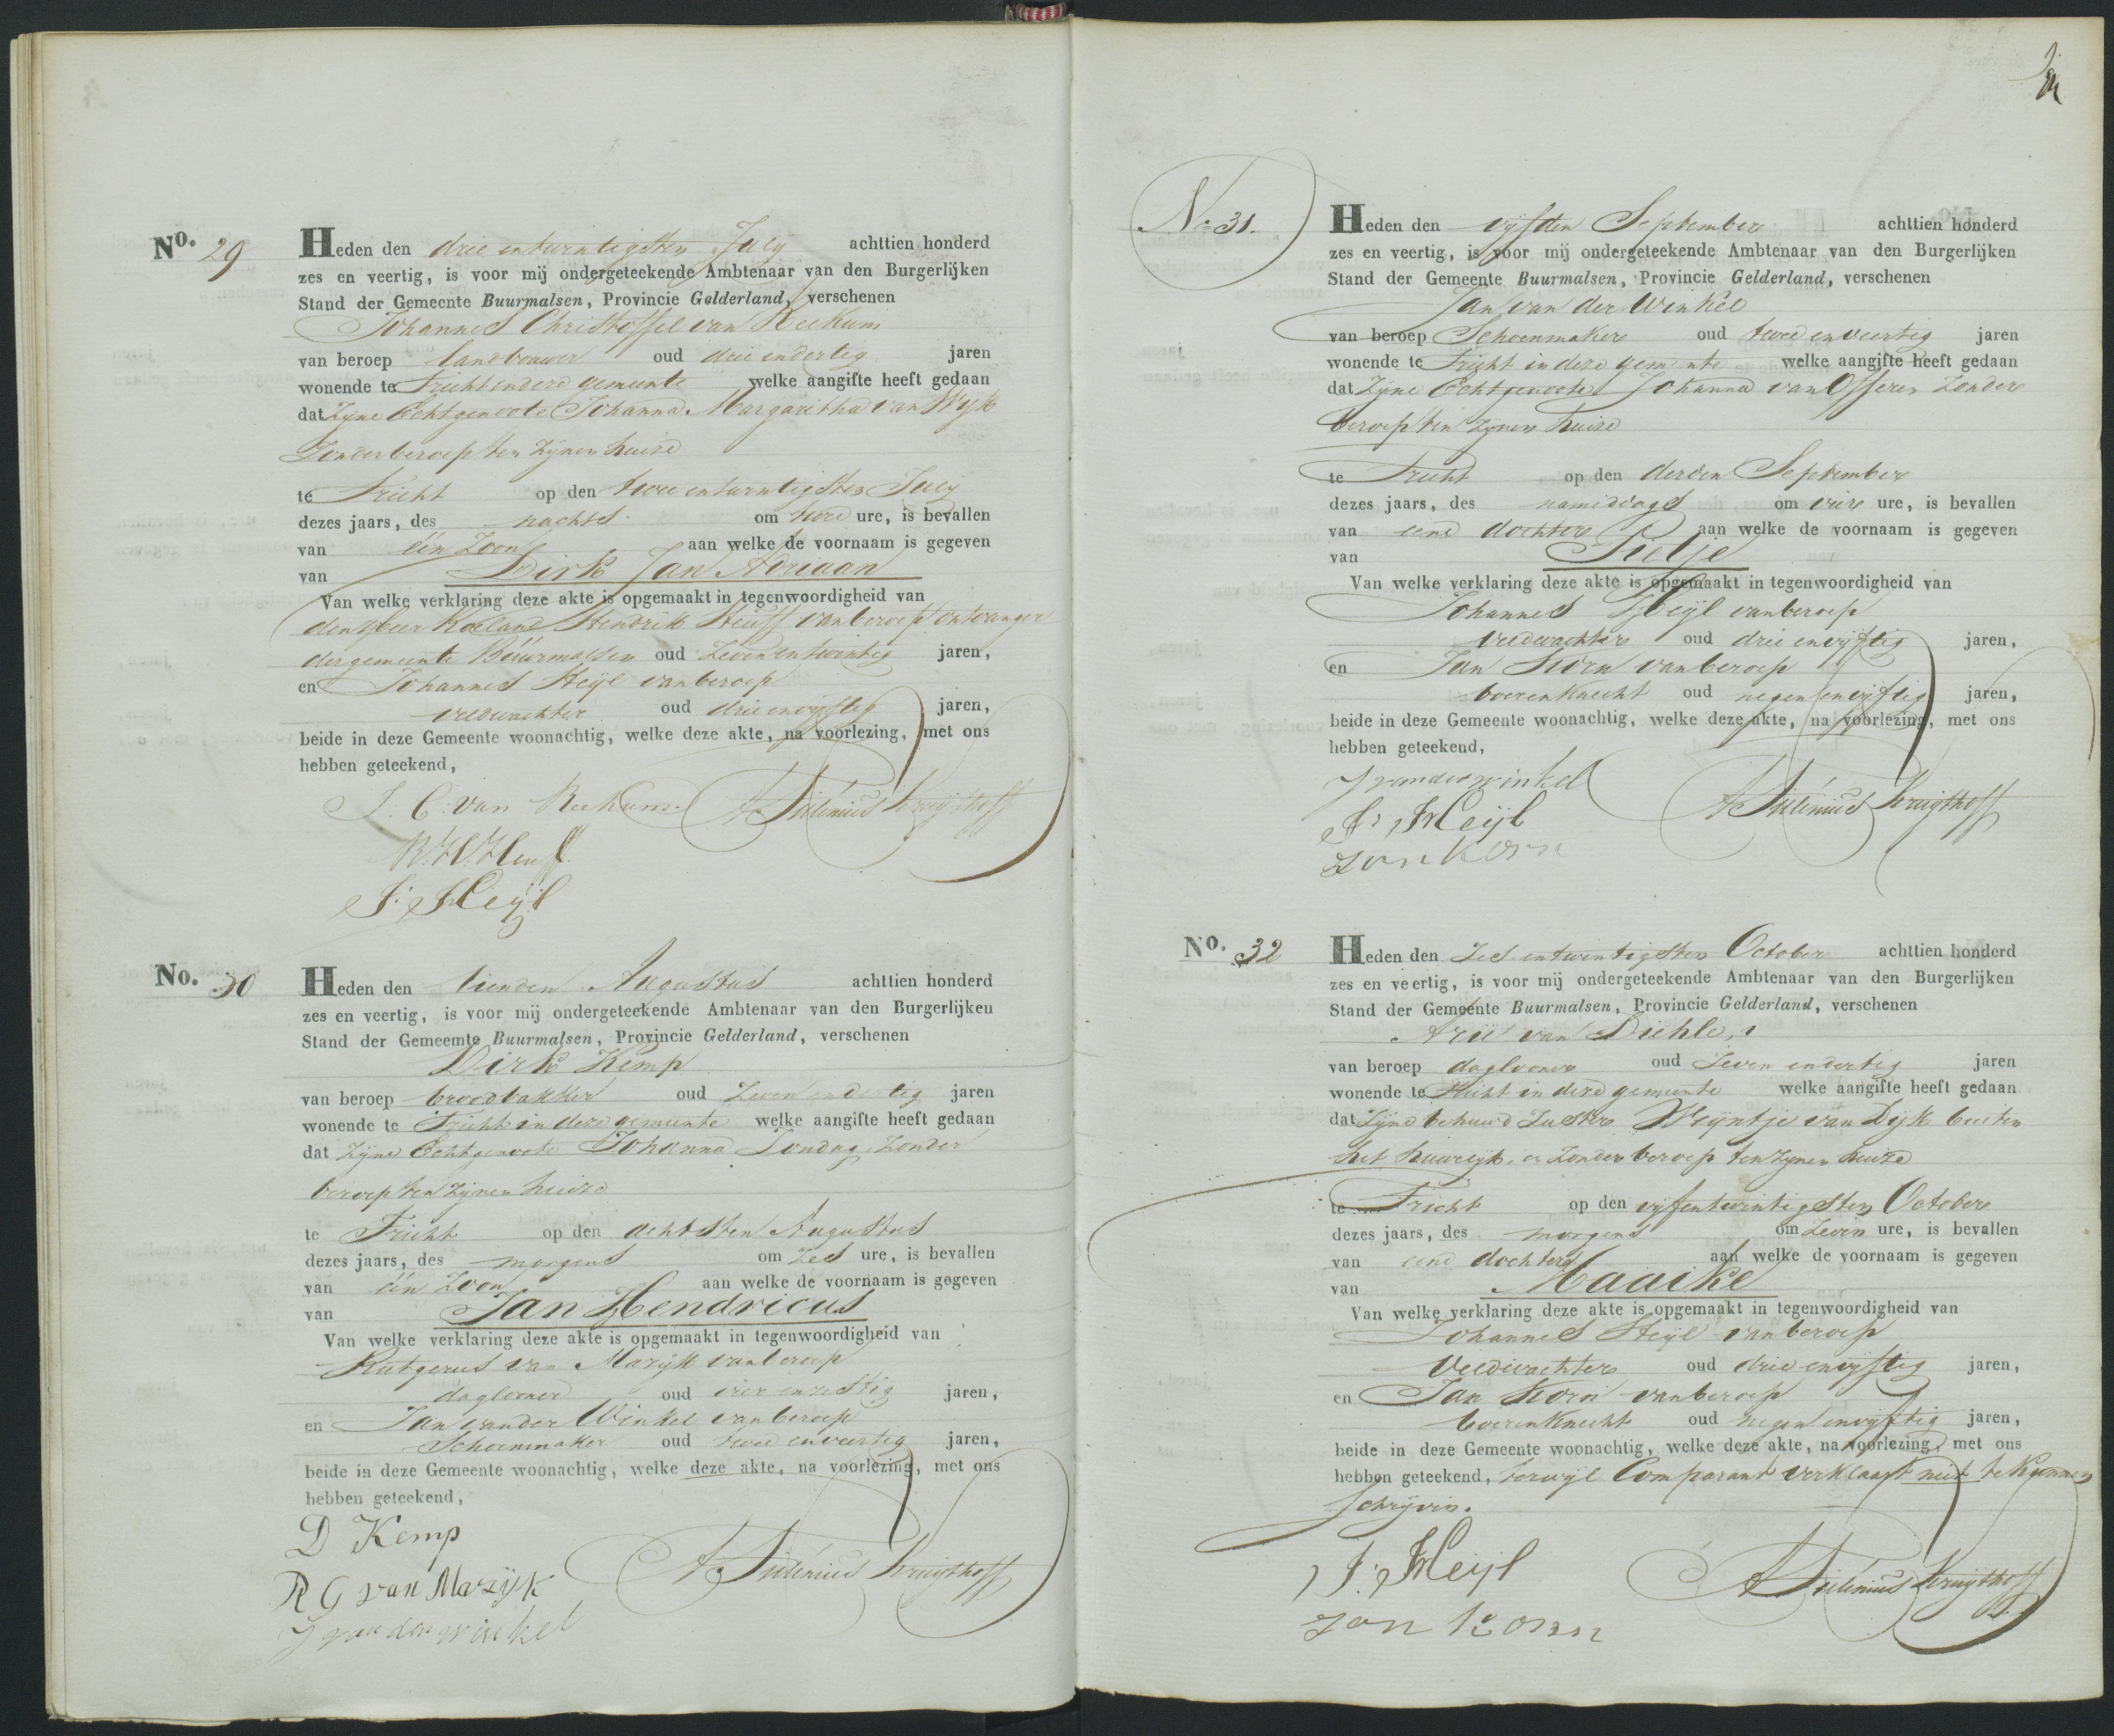 No. 29
Heden den drie en twintigsten July achttien honderd
zes en veertig, is voor mij ondergeteekende Ambtenaar van den Burgerlijken
Stand der Gemeente Buurmalsen, Provincie Gelderland, verschenen
Johannes Christoffel van Reekum
van beroep landbouwer oud drie en dertig jaren
wonende te Tricht in deze gemeente welke aangifte heeft gedaan
dat Zyne Echtgenoote Johanna Margaritha van Wyk
Zonder beroep ten Zynen huize
te Tricht op den twee en twintigsten July
dezes jaars, des nachts om twee ure, is bevallen
van één Zoon aan welke de voornaam is gegeven
van Dirk Jan Adriaan
Van welke verklaring deze akte is opgemaakt in tegenwoordigheid van
den Heer Roeland Hendrik Heuff van beroep ontvanger
der gemeente Buurmalsen oud Zeven en twintig jaren,
en Johannes Heyl van beroep
veldwachter oud drie en vyftig jaren,
beide in deze Gemeente woonachtig, welke deze akte, na voorlezing, met ons
hebben geteekend,
J. C. van Reekum. A Silenius Kruythoff
R. H. Heuff
J. Heyl
No. 30
Heden den tienden Augustus achttien honderd
zes en veertig, is voor mij ondergeteekende Ambtenaar van den Burgerlijken
Stand der Gemeemte Buurmalsen, Provincie Gelderland, verschenen
Dirk Kemp
van beroep broodbakker oud Zeven en dertig jaren
wonende te Tricht in deze gemeente welke aangifte heeft gedaan
dat Zyne Echtgenoote Johanna Zondag Zonder
beroep ten Zynen huize
te Tricht op den achtsten Augustus
dezes jaars, des morgens om Zes ure, is bevallen
van één Zoon aan welke de voornaam is gegeven
van Jan Hendricus
Van welke verklaring deze akte is opgemaakt in tegenwoordigheid van
Rutgerus van Mazyk van beroep
daglooner oud vier en zestig jaren,
en Jan vander Winkel van beroep
Schoenmaker oud twee en veertig jaren,
beide in deze Gemeente woonachtig, welke deze akte, na voorlezing, met ons
hebben geteekend,
D Kemp
R G van Mazijk A Silenius Kruythoff
J van der winkel
No 31.
Heden den vyfden September achttien honderd
zes en veertig, is voor mij ondergeteekende Ambtenaar van den Burgerlijken
Stand der Gemeente Buurmalsen, Provincie Gelderland, verschenen
Jan van der Winkel
van beroep Schoenmaker oud twee en veertig jaren
wonende te Tricht in deze gemeente welke aangifte heeft gedaan
dat Zyne Echtgenoote Johanna van Osseren Zonder
beroep ten Zynen huize
te Tricht op den derden September
dezes jaars, des namiddags om vier ure, is bevallen
van eene dochter aan welke de voornaam is gegeven
van Pietje
Van welke verklaring deze akte is opgemaakt in tegenwoordigheid van
Johannes Heyl van beroep
veldwachter oud drie en vyftig jaren,
en Jan Korn van beroep
boerenknecht oud negen en vyftig jaren,
beide in deze Gemeente woonachtig, welke deze akte, na voorlezing, met ons
hebben geteekend,
J vander winkel A Silenius Kruythoff
J. Heyl
Jan Korn
No. 32
Heden den Zes en twintigsten October achttien honderd
zes en veertig, is voor mij ondergeteekende Ambtenaar van den Burgerlijken
Stand der Gemeente Buurmalsen, Provincie Gelderland, verschenen
Arie van
van beroep daglooner oud Zeven en dertig jaren
wonende te Tricht in deze gemeente welke aangifte heeft gedaan
dat Zyne behuwd Zuster Weyntje van Dyk buiten
het huwelyk, en Zonder beroep ten Zynen huize
te Tricht op den vyfentwintigsten October
dezes jaars, des morgens om Zeven ure, is bevallen
van eene dochter aan welke de voornaam is gegeven
van Maaike
Van welke verklaring deze akte is opgemaakt in tegenwoordigheid van
Johannes Heyl van beroep
Veldwachter oud drie en vyftig jaren,
en Jan Korn van beroep
boerenknecht oud negen en vyftig jaren,
beide in deze Gemeente woonachtig, welke deze akte, na voorlezing, met ons
hebben geteekend, terwyl Comparant verklaart niet te kunnen
Schryven.
J. Heyl A Silenius Kruythoff
Jan Korn